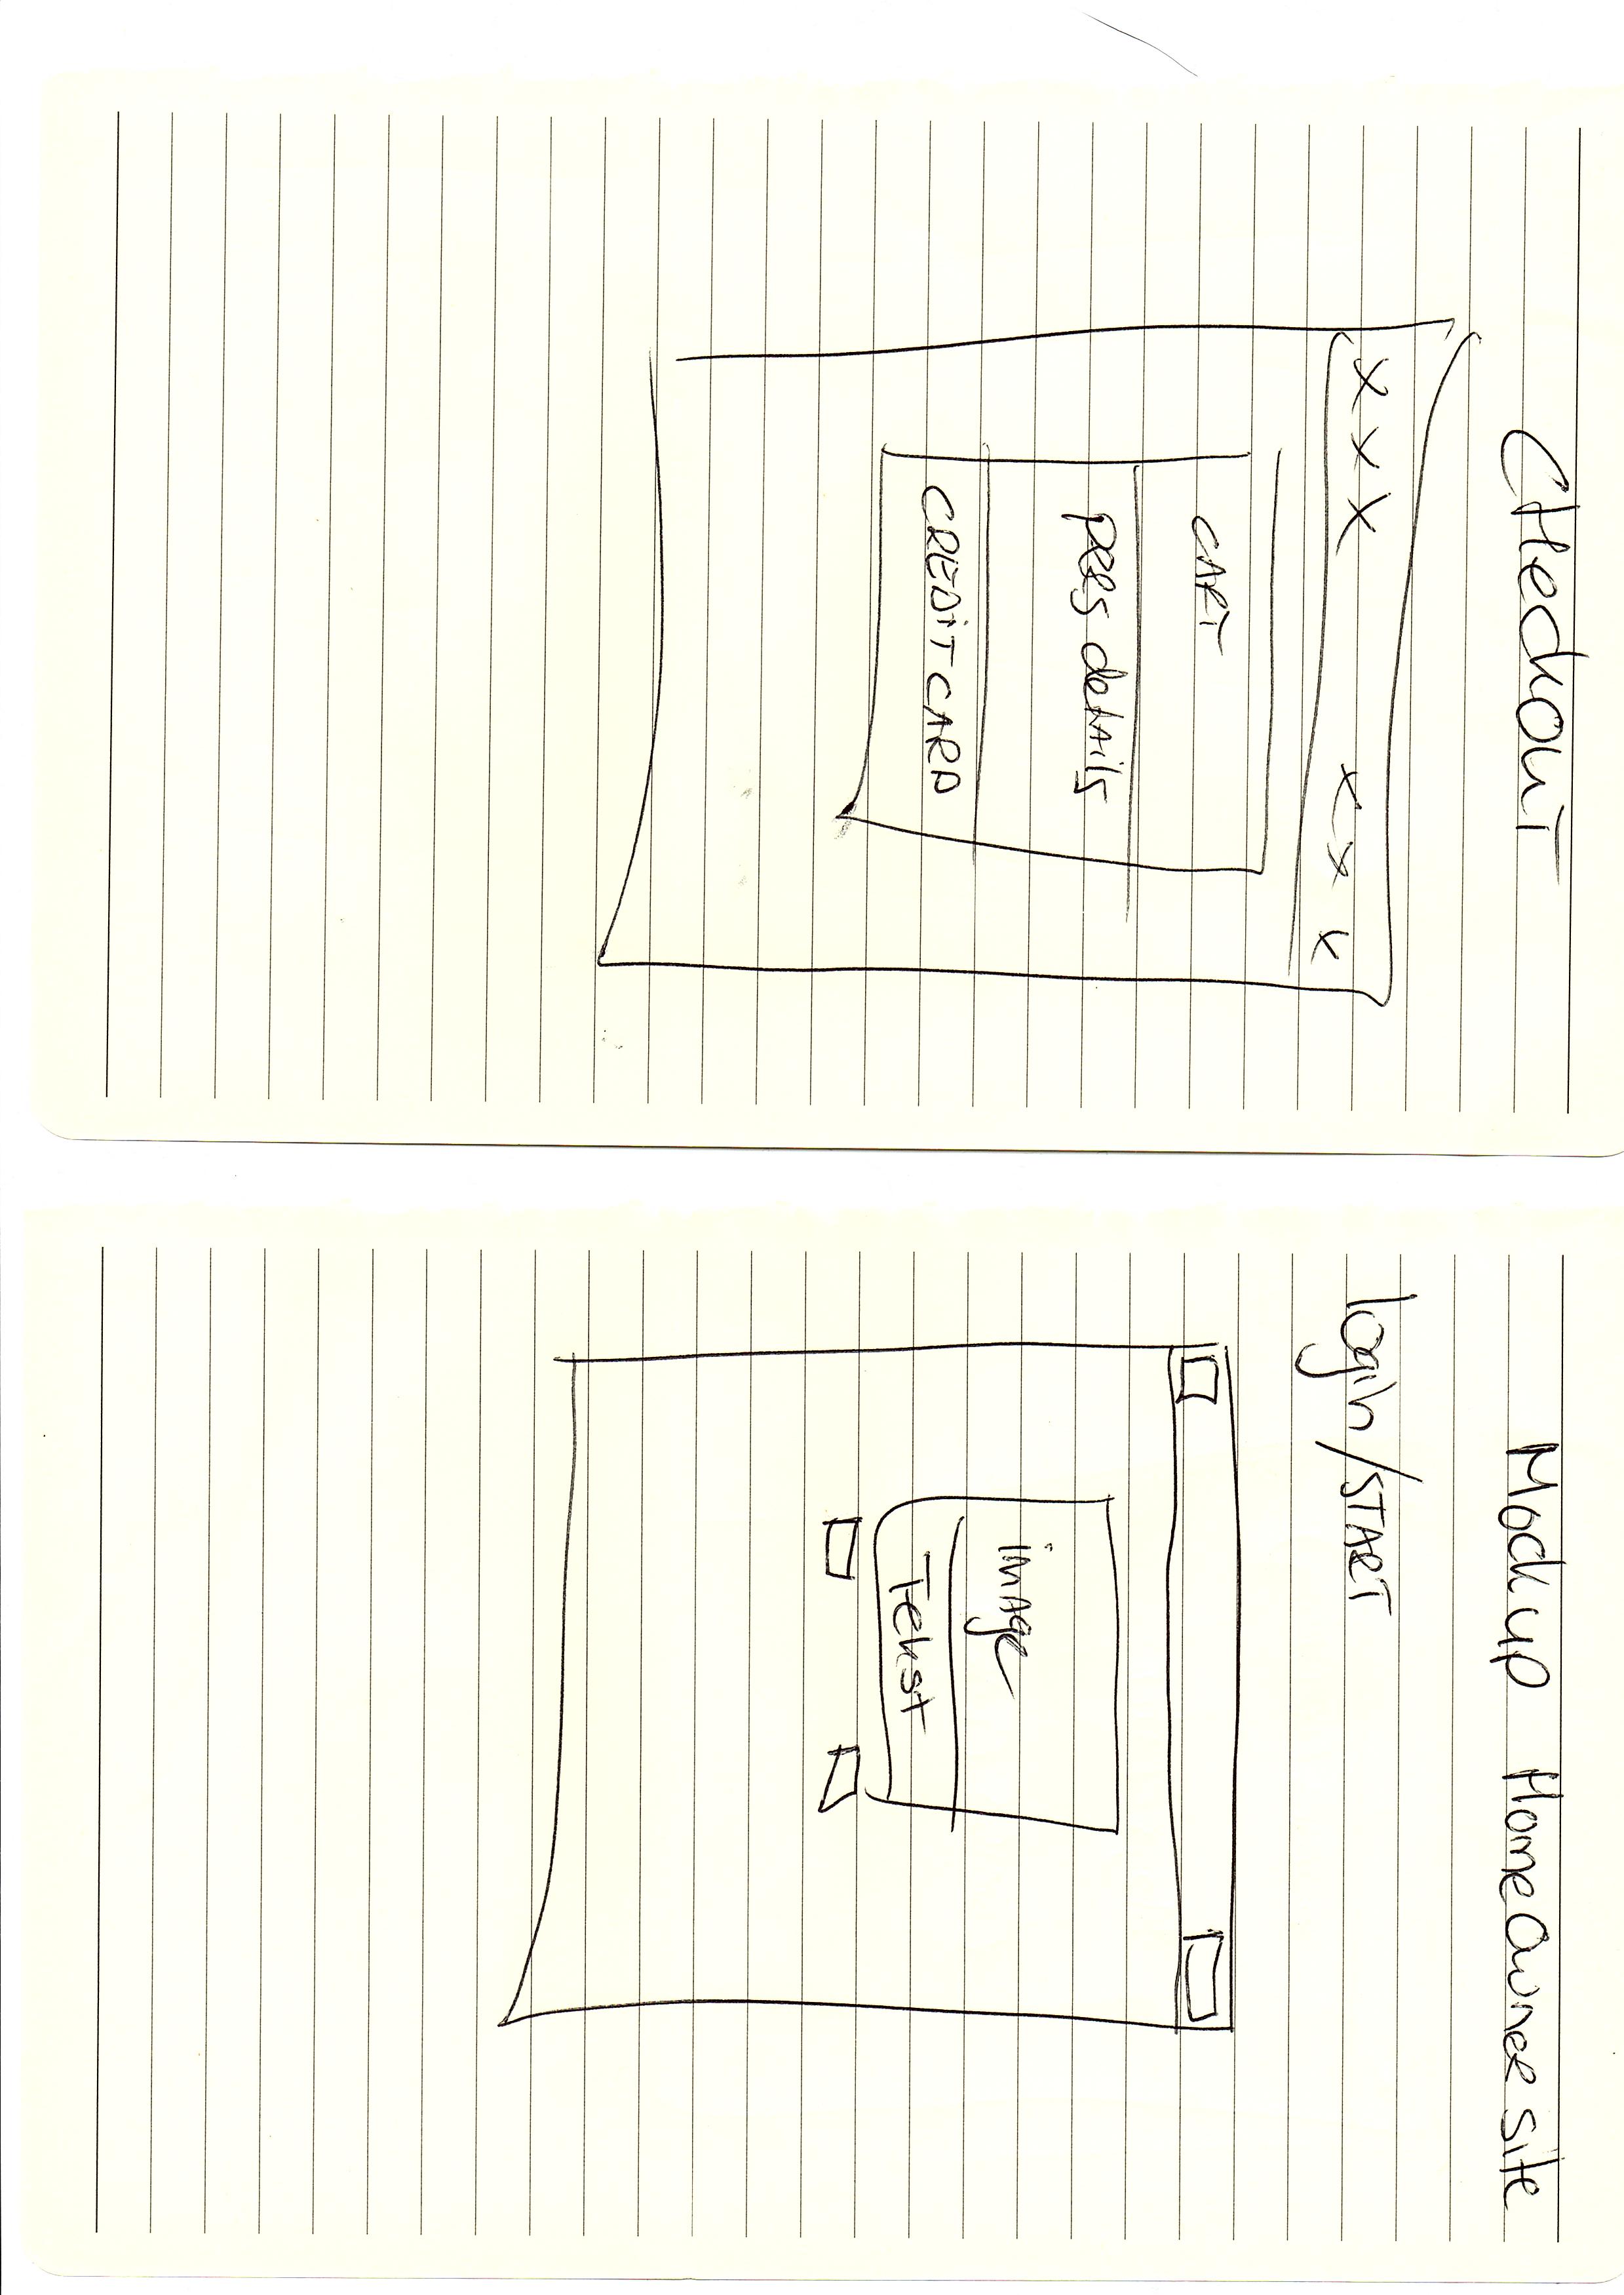 Checkout
x x x x x x
CART
pers details
CREDITCARD
Mockup HomeOwner site
login/START
image
Tekst